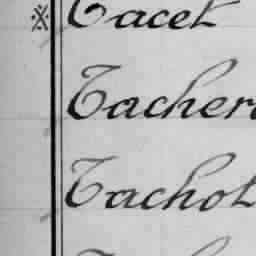 Tacet
Tacher
Tachot